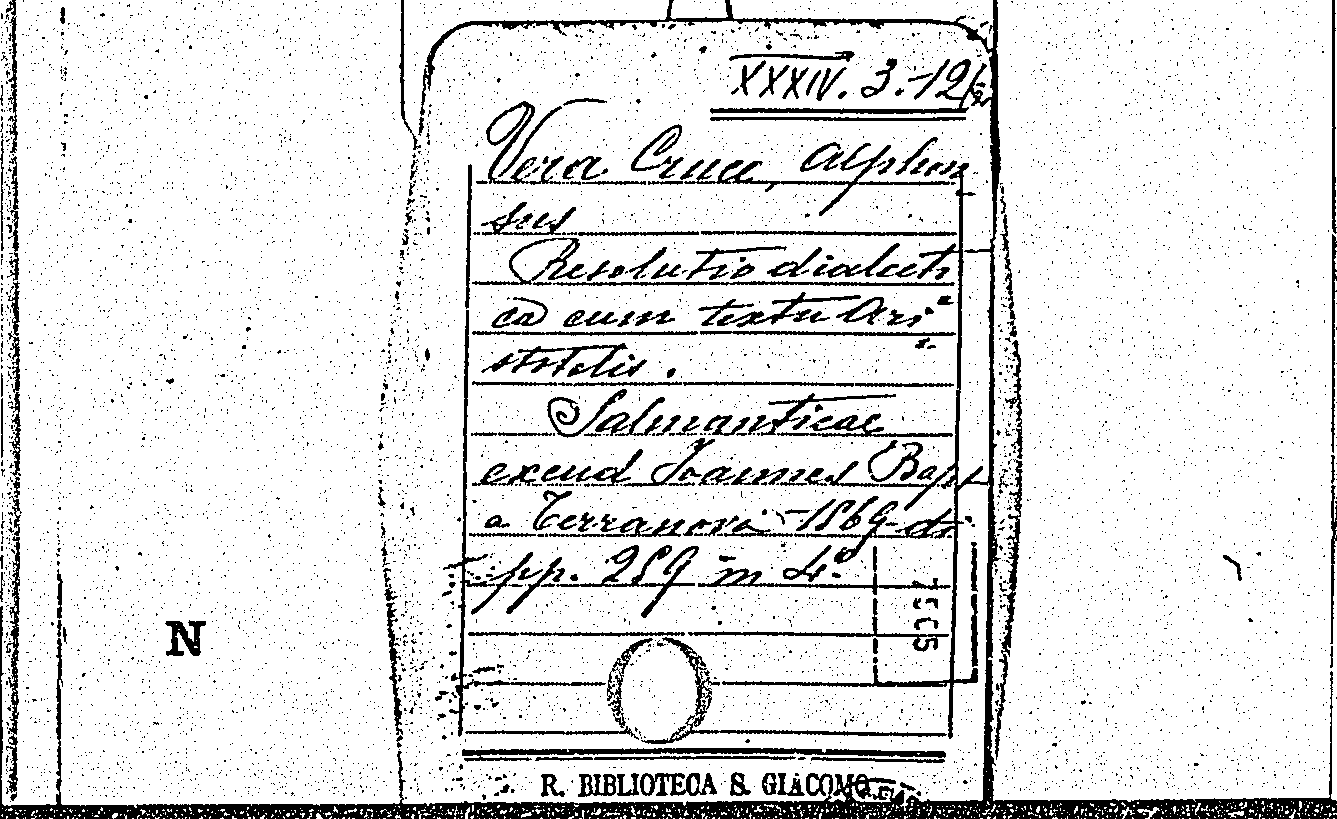 XXXIV. 3.-12
Vera Cruce, Alphon
sus
Resolutio dialecti
ca cum textu Ari=
stotelis.
Salmanticae
excud Joannes Bapt
a Terranova - 1569
pp. 289 in 4.º
N
R. BIBLIOTECA S. GIACOMO